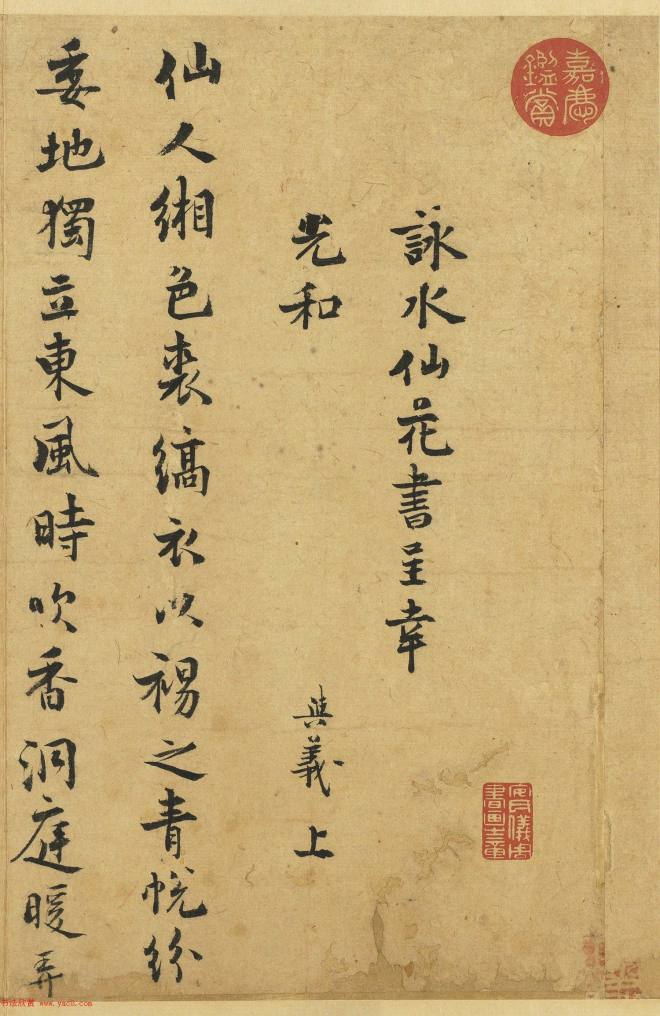 詠水仙花書呈幸
光和
與義上
仙人緗色裘縞衣以裼之青帨紛
委地獨立東風時吹香洞庭暖弄
嘉慶鑑賞
安儀周書畫之章
书法欣赏 www.yac8.com